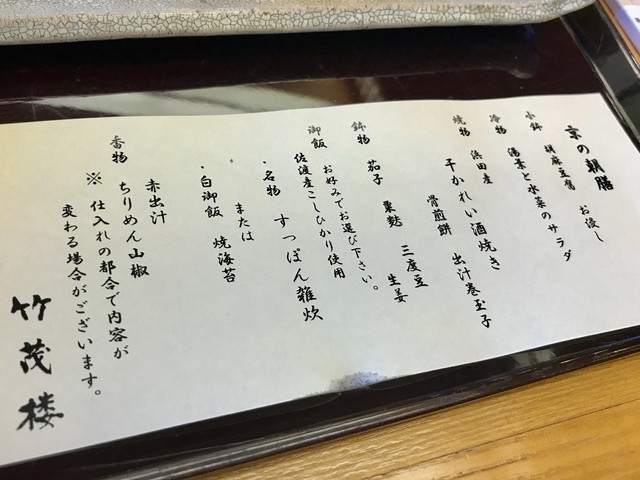 京の朝膳
小鉢　胡麻豆腐　お浸し
冷物　湯葉と水菜のサラダ
焼物　浜田産
干かれい酒焼き　出汁巻玉子
骨煎餅
鉢物　茄子　粟麩　三度豆　生姜
御飯　お好みでお選び下さい。
佐渡産こしひかり使用
・名物　すっぽん雑炊
または
・白御飯　焼海苔
赤出汁
香物　ちりめん山椒
※　仕入れの都合で内容が
変わる場合がございます。
竹茂楼